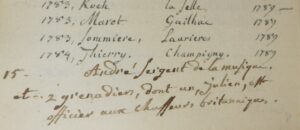 1783, Koch la Selle 1787
1783, Marot Guilhac 1789
1783, Sommière, Laurieres 1789
1784, Thierry, Champigny, 1789
15 - André Sergent de la musique
et - 2 grenadiers, dont un, Julien, est
officier aux chasseurs britanniques.